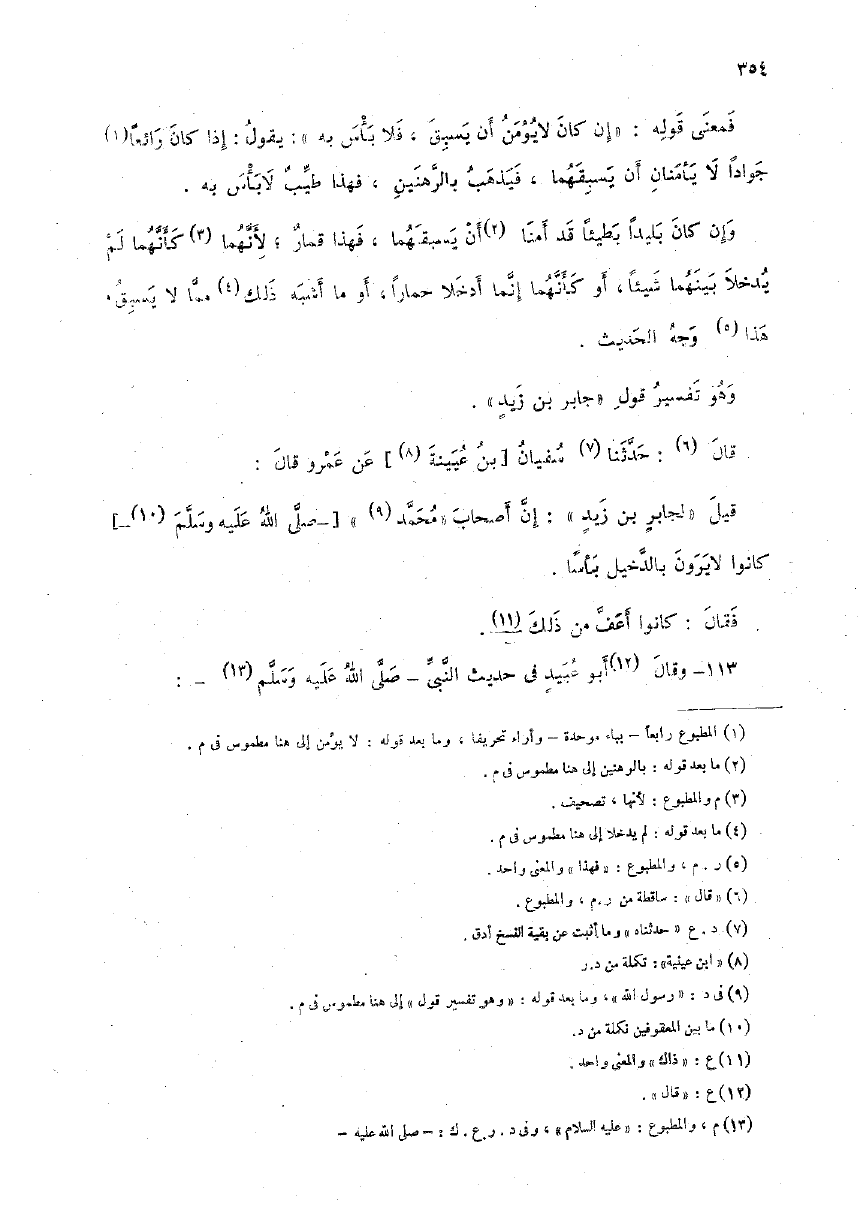 ٣٥٤
فَمعنَى قَولِه : «إن كانَ لايُؤمَنُ أن يَسبِقَ ، فَلا بَأْسَ به » : يقولُ : إذا كانَ رَائعًا(١)
جَواداً لَا يَأمَنانِ أن يَسبِقَهُما ، فَيَذهَبُ بالرَّهنَينِ ، فهذا طيِّبٌ لَابَأْسَ به .
وَإن كانَ بَليداً بَطيئاً قَد أَمنَا (٢)أَنْ يَسبقَهُما ، فَهذا قمارٌ ؛ لِأَنَّهُما (٣) كَأنَّهُما لَمْ
يُدخلَا بَينَهُما شَيئاً ، أو كَأنَّهُما إنَّما أدخَلا حماراً ، أو ما أشبَه ذَلك(٤) ممَّا لا يَسبِقُ ·
هَذا (٥) وَجهُ الحَديث .
وَهُو تَفسيرُ قَولِ «جابر بن زَيدٍ» .
قالَ (٦) : حَدَّثَنا (٧) سُفيانُ [بنُ عُيَينةَ (٨) ] عَن عَمْرو قالَ :
قيلَ «لجابرِ بن زَيدٍ » : إنَّ أصحابَ «مُحَمَّد (٩) » [ــ صلَّى اللهُ عَلَيه وسَلَّمَ (١٠)ــ]
كانوا لايَرَونَ بالدَّخيل بَأسًا .
فَقالَ : كانوا أَعَفَّ من ذَلكَ (١١) .
١١٣ــ وقالَ (١٢)أَبو عُبَيدٍ فى حديث النَّبىِّ ــ صَلَّى اللهُ عَلَيه وَسَلَّم (١٣) ــ :
(١) المطبوع رابعاً – بباء موحدة – وأراه تحريفا ، وما بعد قوله : لا يؤمن إلى هنا مطموس فى م .
(٢) ما بعد قوله : بالرهنين إلى هنا مطموس فى م .
(٣) م والمطبوع : لأنها ، تصحيف .
(٤) ما بعد قوله : لم يدخلا إلى هنا مطموس فى م .
(٥) ر . م ، والمطبوع : « فهذا » والمعنى واحد .
(٦) « قال » : ساقطة من ر.م ، والمطبوع .
(٧) د . ع « حدثناه » وما أثبت عن بقية النسخ أدق .
(٨) « ابن عيينة» : تكملة من د.ر
(٩) فى د : « رسول الله » ، وما بعد قوله : « وهو تفسير قول » إلى هنا مطموس فى م .
(١٠) ما بين المعقوفين تكملة من د.
(١١) ع : « ذاك » والمعنى واحد .
(١٢) ع : « قال » .
(١٣) م ، والمطبوع : « عليه السلام » ، وفى د . ر .ع . ك : – صلى الله عليه –